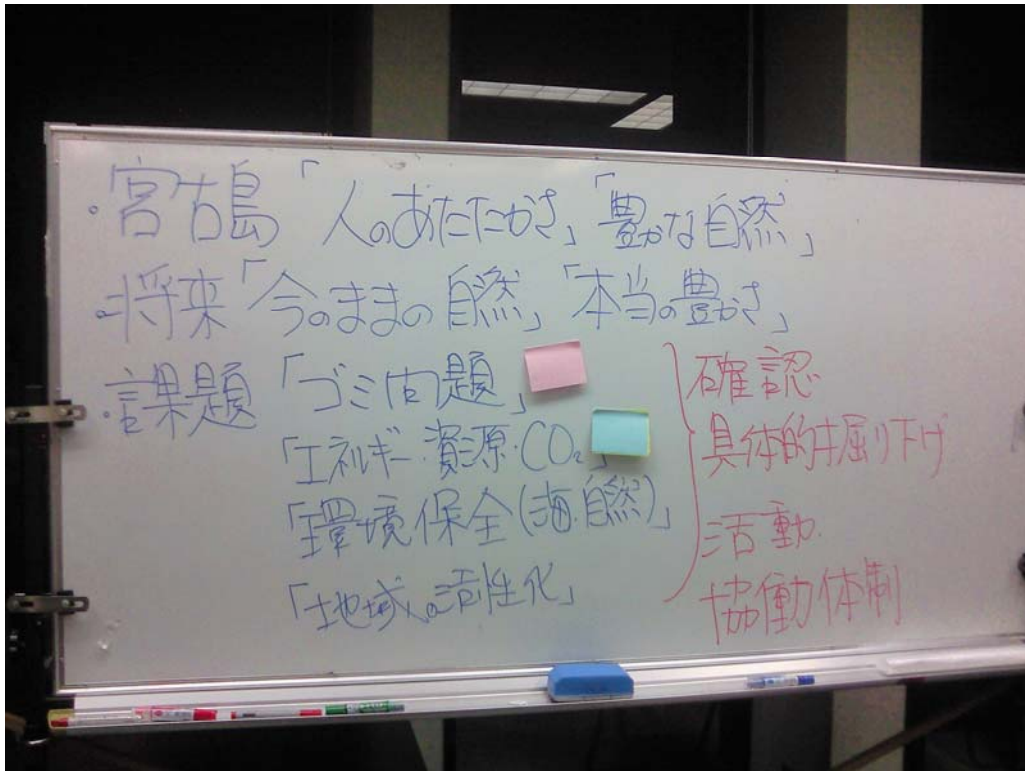 ・宮古島「人のあたたかさ」「豊かな自然」
・将来「今のままの自然」「本当の豊かさ」
・課題「ゴミ問題」
「エネルギー・資源・CO₂」
「環境保全(海・自然)」
「地域の活性化」
確認
具体的掘り下げ
活動
協働体制